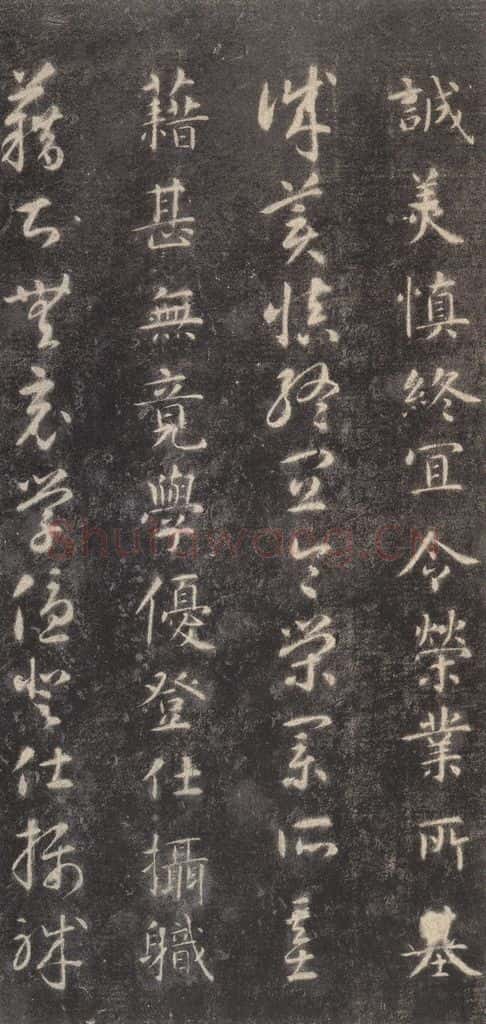 誠美慎終宜令榮業所基
誠美慎終宜令榮業所基
藉甚無竟學優登仕攝職
藉甚無竟學優登仕攝職
Shufawang.CN